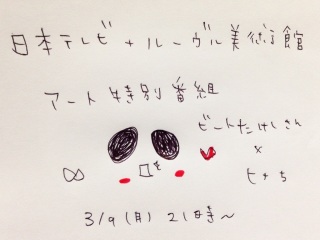 日本テレビ+ルーヴル美術館
アート特別番組
ビートたけしさん
×
ヒナち
3/9(月) 21時~